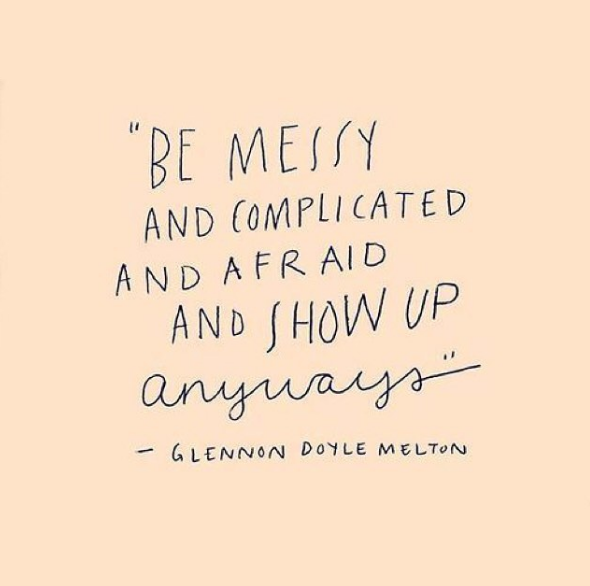 "BE MESSY
AND COMPLICATED
AND AFRAID
AND SHOW UP
anyways"
- GLENNON DOYLE MELTON